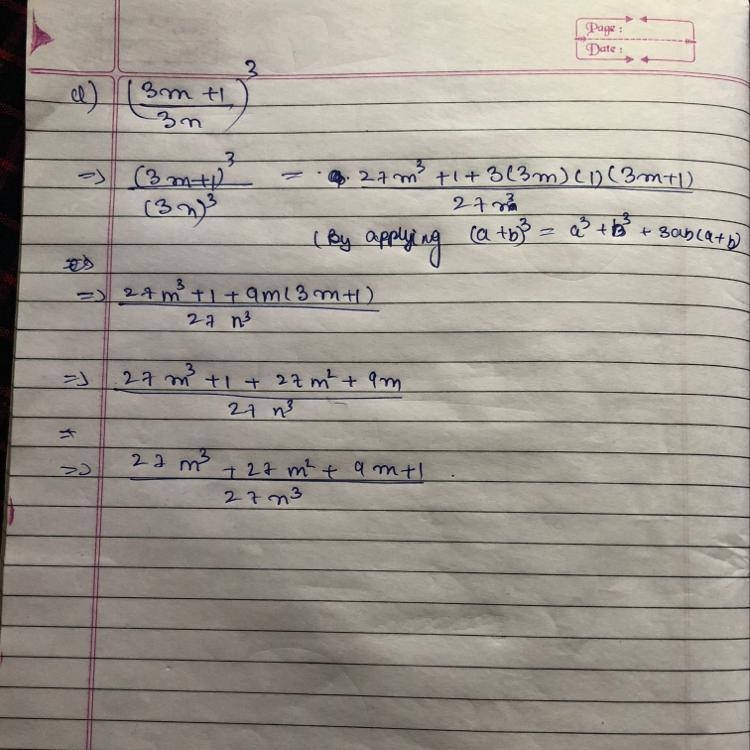 Page :
Date :
d) (3m +1 / 3n)^3
=> (3m+1)^3 / (3n)^3 = 27m^3 +1 + 3(3m)(1)(3m+1) / 27n^3
(By applying (a+b)^3 = a^3 + b^3 + 3ab(a+b)
=> 27m^3 +1 + 9m(3m+1) / 27 n^3
=> 27 m^3 +1 + 27m^2 + 9m / 27 n^3
=> 27 m^3 + 27 m^2 + 9m+1 / 27n^3 .